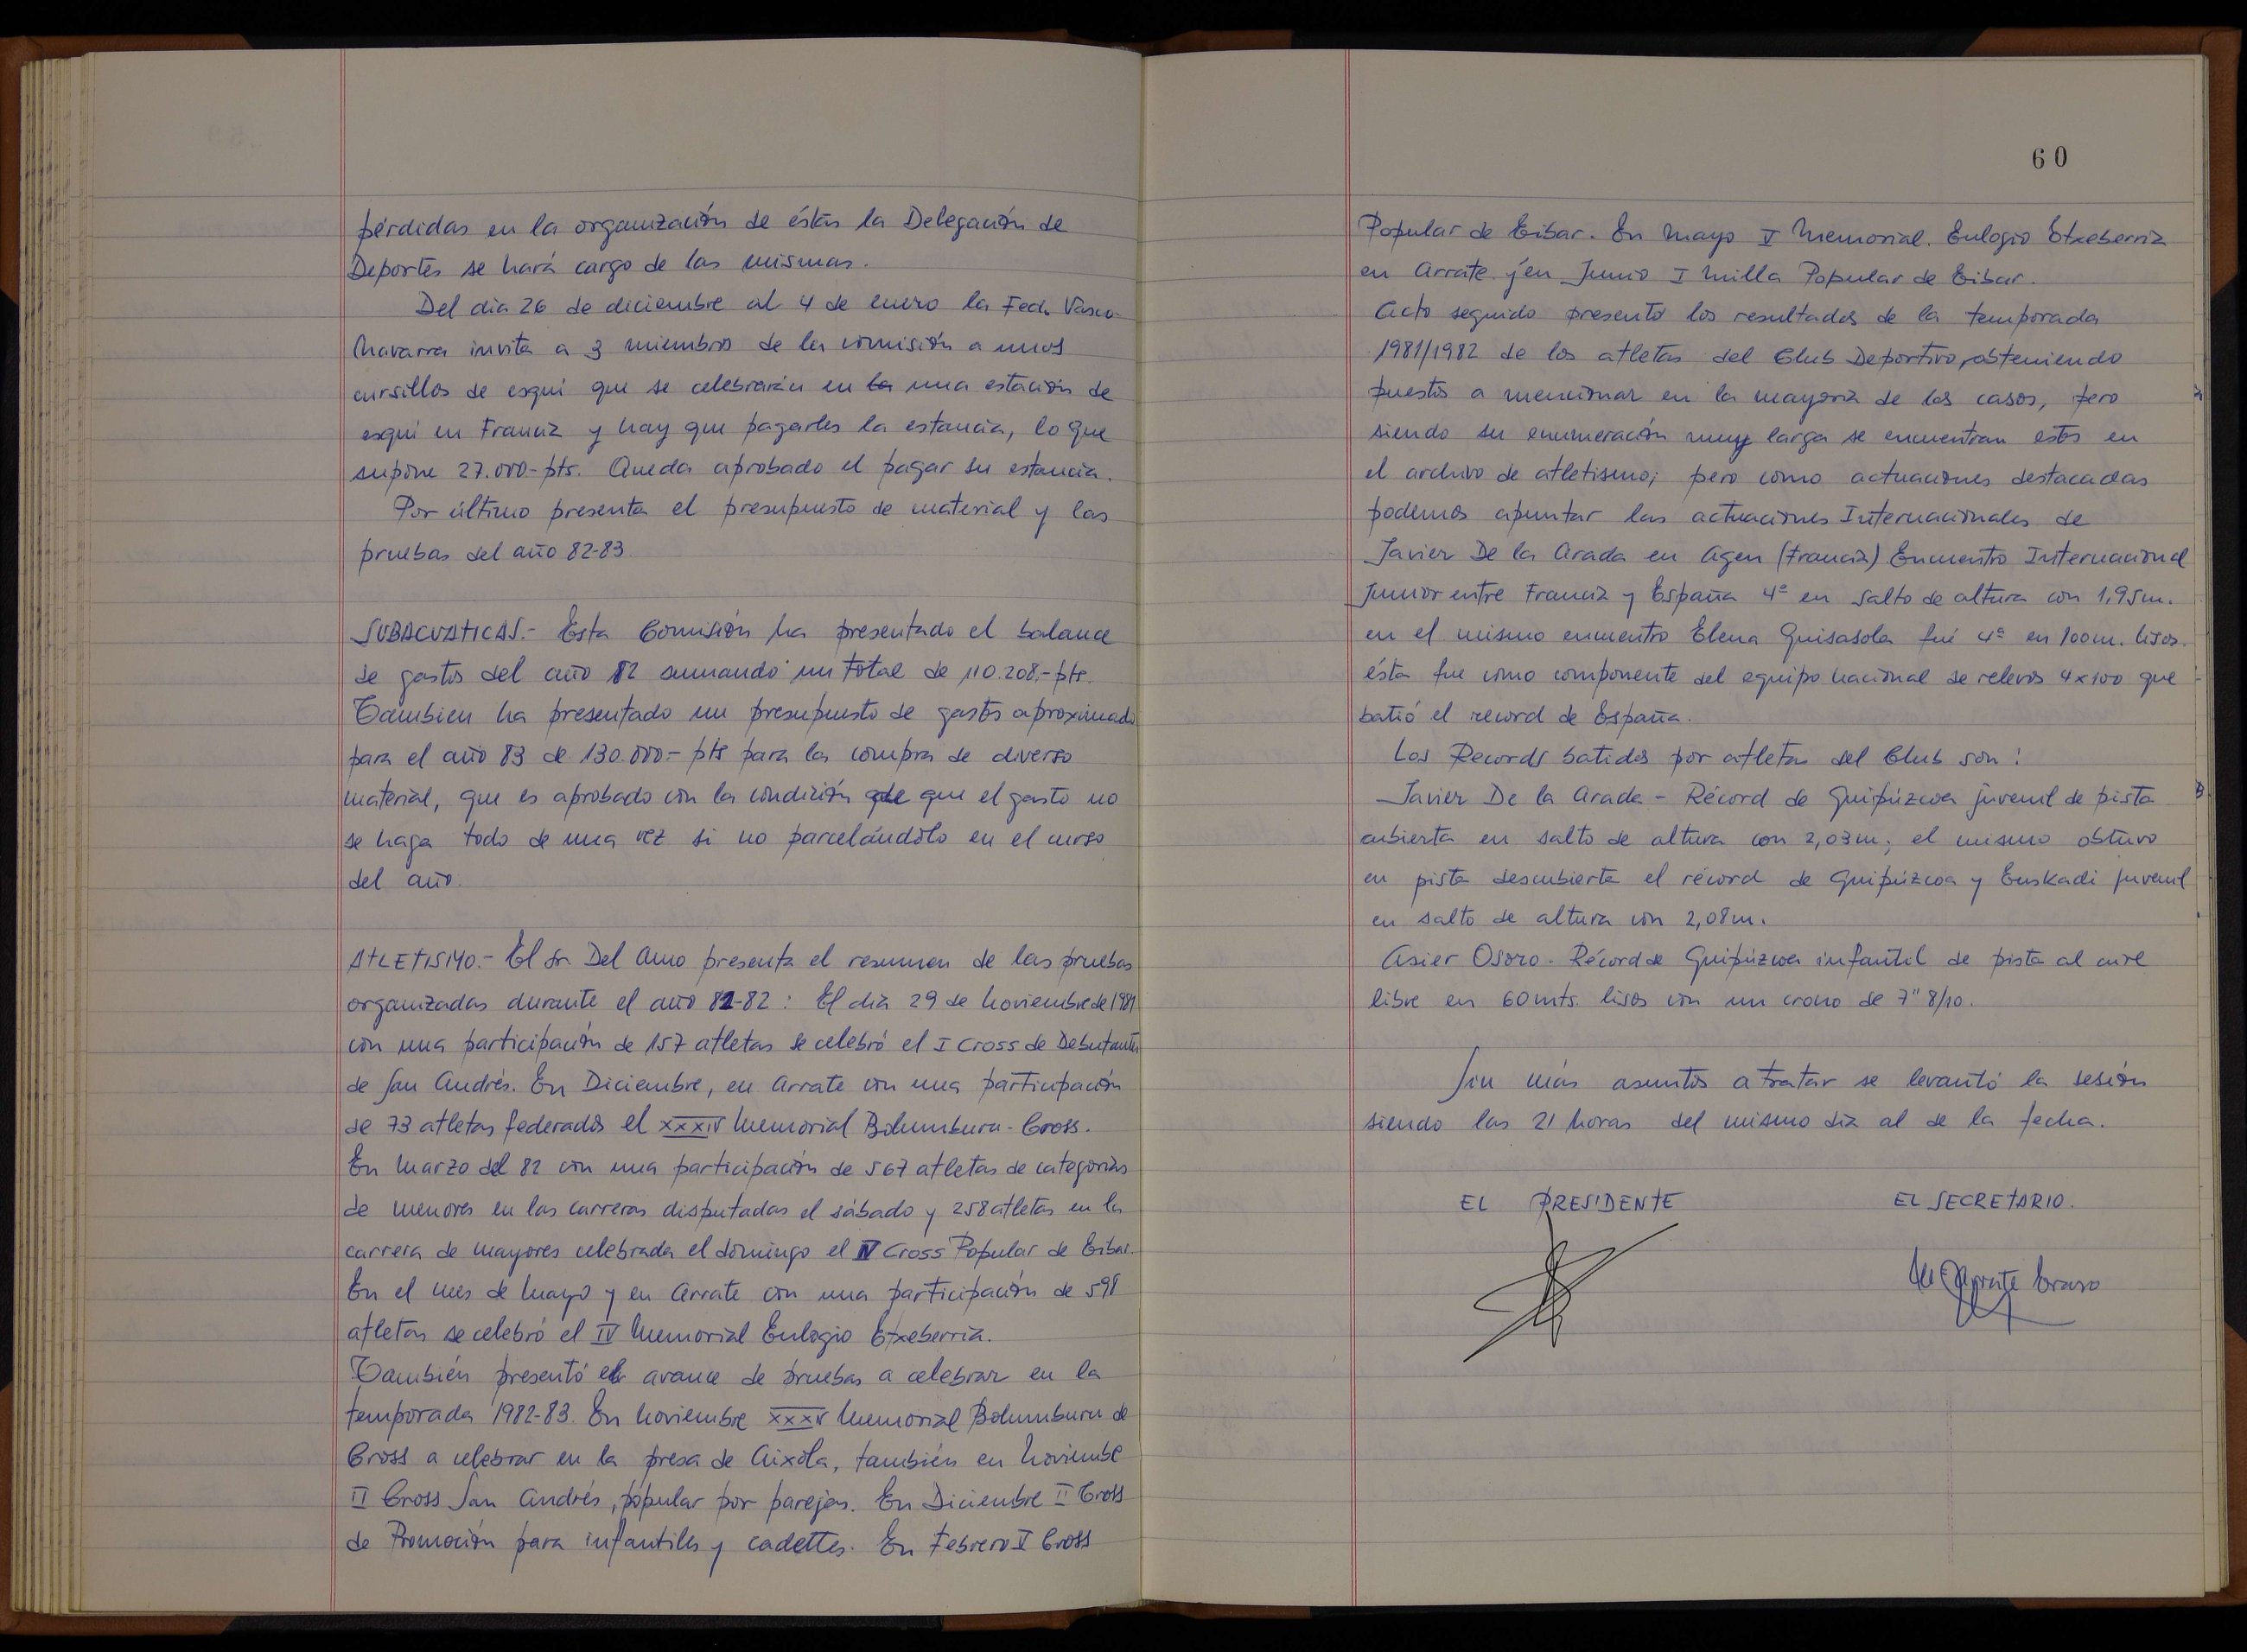 pérdidas en la organización de éstas la Delegación de
Deportes se hará cargo de las mismas.
Del dia 26 de diciembre al 4 de enero la Fed. Vasco-
Navarra invita a 3 miembros de la comisión a unos
cursillos de esqui que se celebrarán en la una estación de
esqui en Francia y hay que pagarles la estancia, lo que
supone 27.000.- pts. Queda aprobado el pagar su estancia.
Por último presenta el presupuesto de material y las
pruebas del año 82-83.
SUBACUATICAS.- Esta Comisión ha presentado el balance
de gastos del año 82 sumando un total de 110.208,- pts.
Tambien ha presentado un presupuesto de gastos aproximado
para el año 83 de 130.000.- pts para la compra de diverso
material, que es aprobado con la condición que que el gasto no
se haga todo de una vez si no parcelándolo en el curso
del año.
ATLETISMO.- El Sr. Del Amo presenta el resumen de las pruebas
organizadas durante el año 81-82: El dia 29 de Noviembre de 1981
con una participación de 157 atletas se celebró el I Cross de Debutantes
de San Andrés. En Diciembre, en Arrate con una participación
de 73 atletas federados el XXXIV Memorial Bolumburu-Cross.
En Marzo del 82 con una participación de 567 atletas de categorias
de menores en las carreras disputadas el sábado y 258 atletas en la
carrera de mayores celebrada el domingo el IV Cross Popular de Eibar.
En el mes de Mayo y en Arrate con una participación de 598
atletas se celebró el IV Memorial Eulogio Etxeberria.
También presentó el avance de pruebas a celebrar en la
temporada 1982-83. En Noviembre XXXV Memorial Bolumburu de
Cross a celebrar en la presa de Aixola, también en Noviembe
II Cross San Andrés, popular por parejas. En Diciembre II Cross
de Promoción para infantiles y cadettes. En Febrero V Cross
60
Popular de Eibar. En Mayo V Memorial. Eulogio Etxeberria
en Arrate y en Junio I Milla Popular de Eibar.
Acto seguido presentó los resultados de la temporada
1981/1982 de los atletas del Club Deportivo, obteniendo
puestos a mencionar en la mayoria de los casos, pero
siendo su enumeración muy larga se encuentran estos en
el archivo de atletismo; pero como actuaciones destacadas
podemos apuntar las actuaciones Internacionales de
Javier De la Arada en Agen (Francia) Encuentro Internacional
Junior entre Francia y España 4º en salto de altura con 1,95m.
en el mismo encuentro Elena Guisasola fué 4ª en 100m. lisos.
ésta fue como componente del equipo nacional se relevos 4x100 que
batió el record de España.
Los Records batidos por atletas del Club son:
Javier De la Arada - Récord de Guipúzcoa juvenil de pista
cubierta en salto de altura con 2,03m; el mismo obtuvo
en pista descubierta el récord de Guipúzcoa y Euskadi juvenil
en salto de altura con 2,08m.
Asier Osoro. Récord de Guipúzcoa infantil de pista al aire
libre en 60 mts. lisos con un crono de 7" 8/10.
Sin más asuntos a tratar se levantó la sesión
siendo las 21 horas del mismo dia al de la fecha.
EL PRESIDENTE EL SECRETARIO.